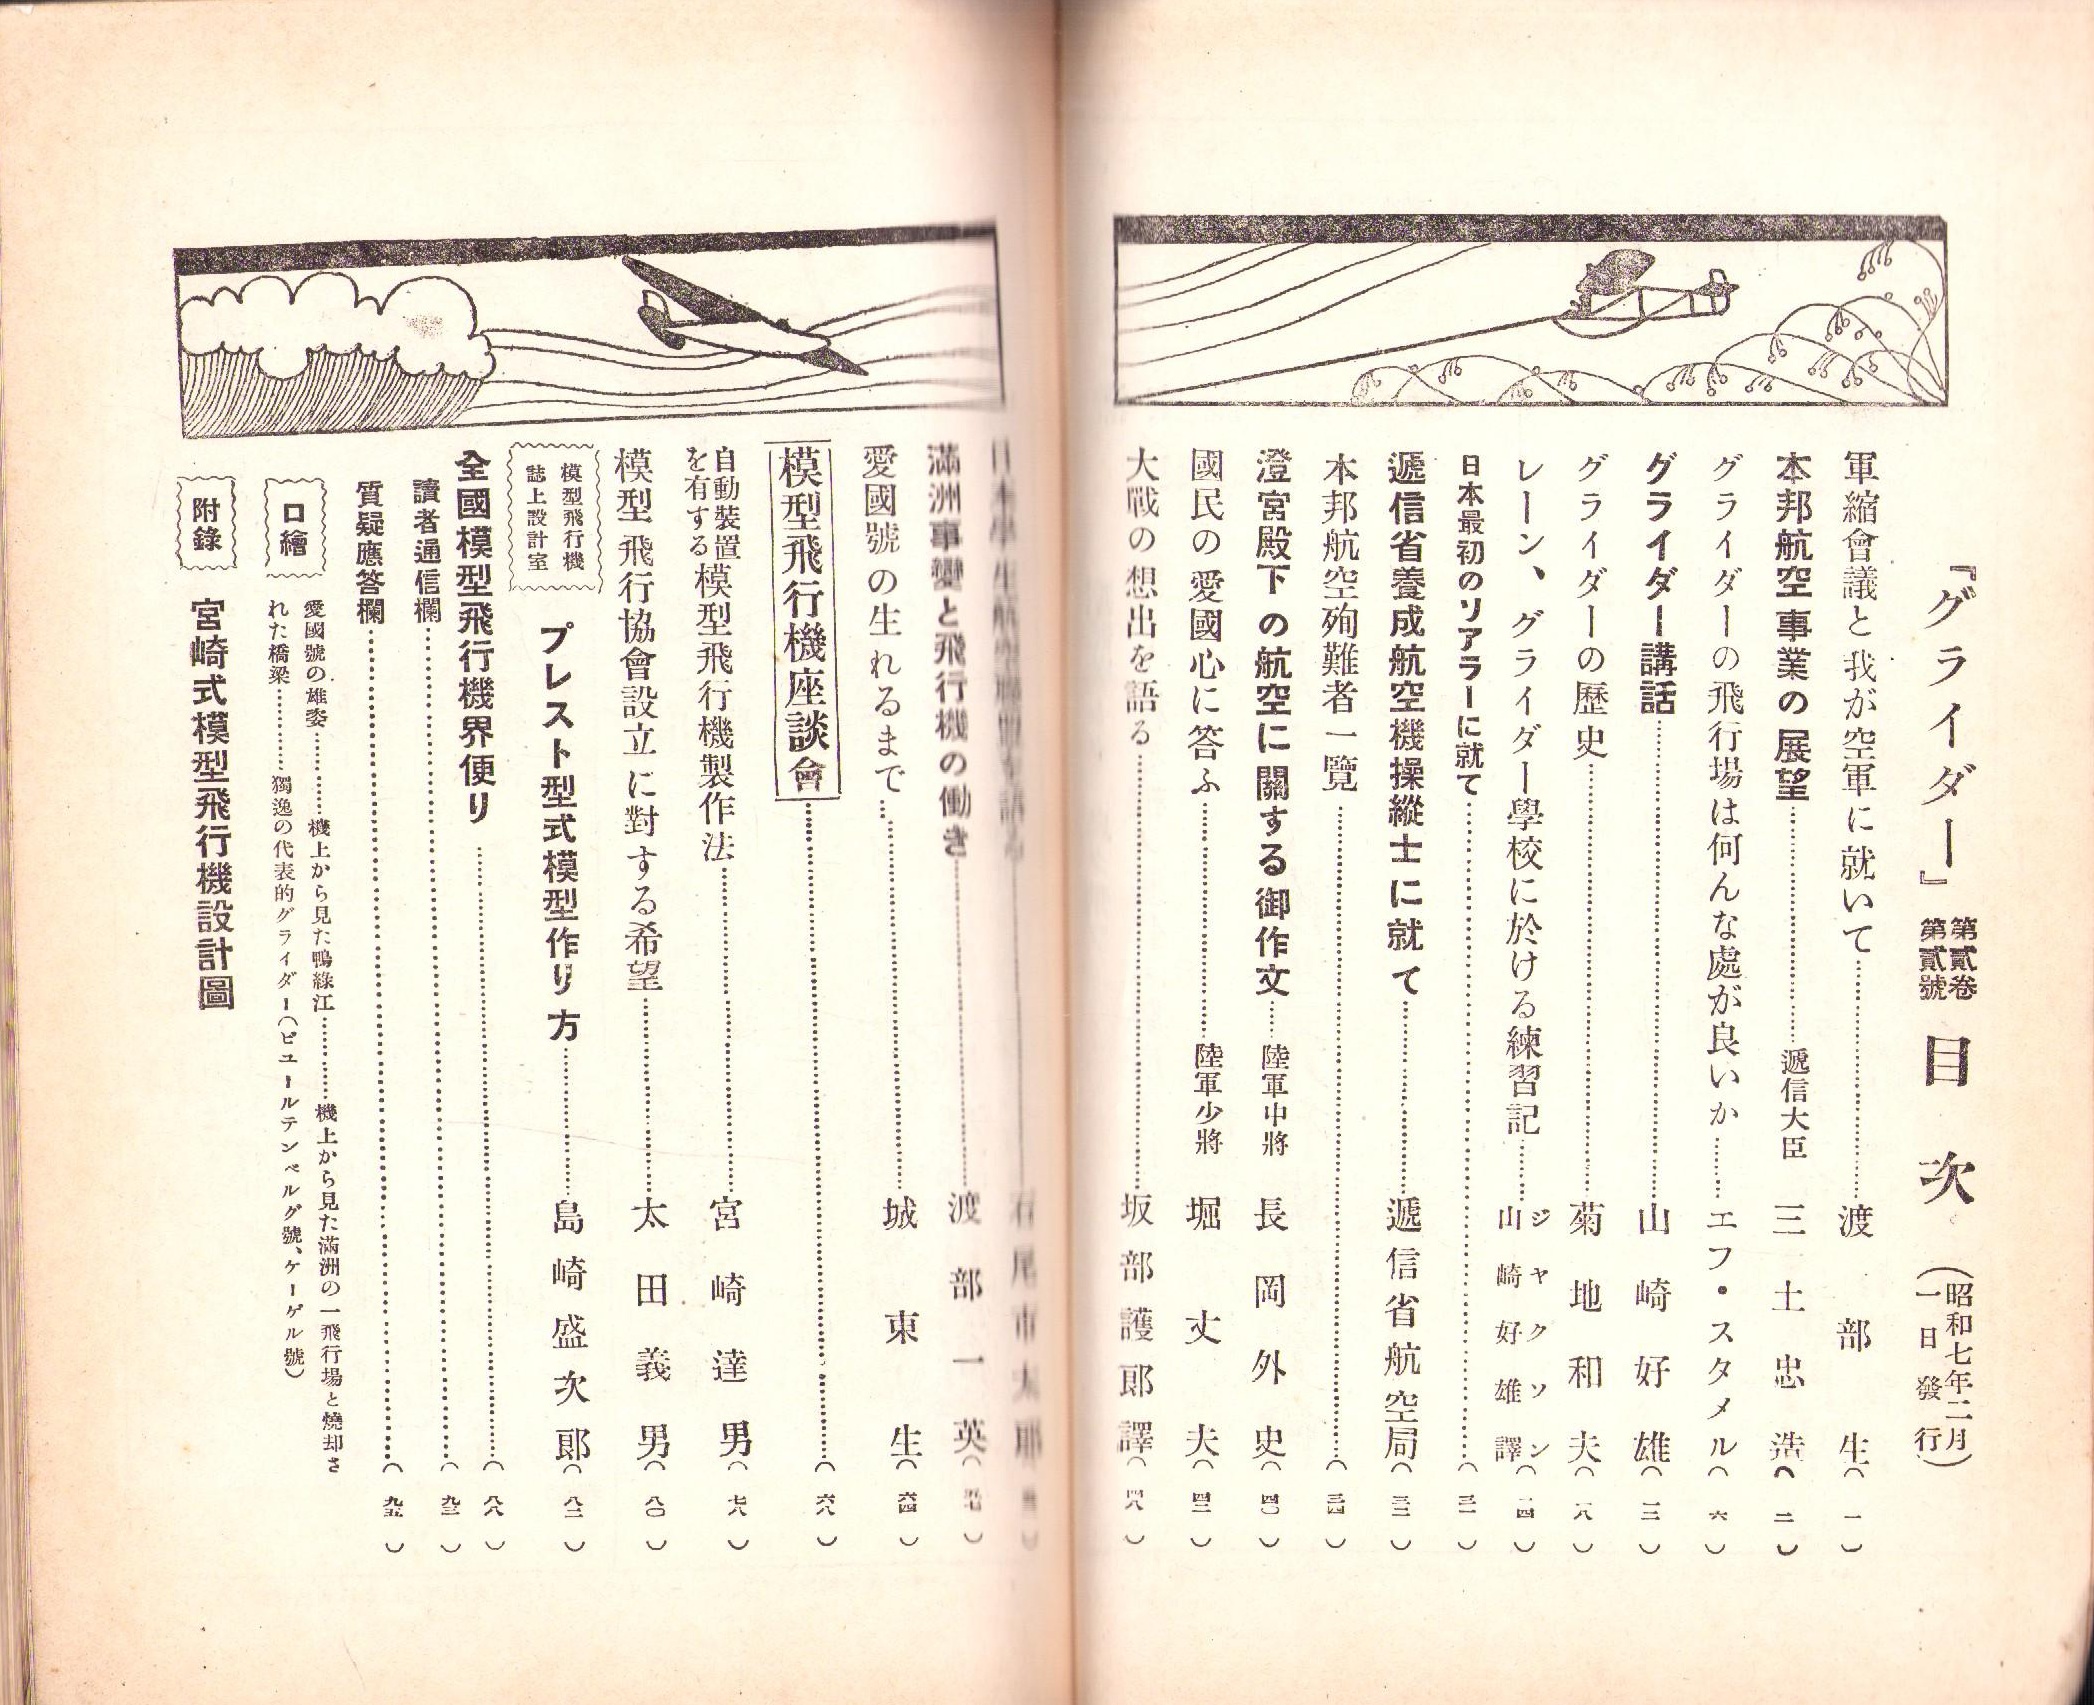 『グライダー』第貳卷第貳號 目次 (昭和七年二月一日發行)
軍縮會議と我が空軍に就いて………渡部生(一)
本邦航空事業の展望………遞信大臣 三土忠造(二)
グライダーの飛行場は何んな處が良いか……エフ・スタメル(六)
グライダー講話………山崎好雄(一三)
グライダーの歷史………菊地和夫(一八)
レーン、グライダー學校に於ける練習記……ジャクソン 山崎好雄譯(二四)
日本最初のソアラーに就て………
遞信省養成航空機操縱士に就て………遞信省航空局
本邦航空殉難者一覽………(三四)
澄宮殿下の航空に關する御作文……陸軍中將 長岡外史(四〇)
國民の愛國心に答ふ………陸軍少將 堀丈夫
大戰の想出を語る………坂部護郎譯(四八)
滿洲事變と飛行機の働き………渡部一英(五七)
愛國號の生れるまで………城東生(六四)
模型飛行機座談會………(六八)
自動裝置を有する模型飛行機製作法………宮崎達男(七八)
模型飛行協會設立に對する希望………太田義男(八〇)
模型飛行機誌上設計室 プレスト型式模型作り方………島崎盛次郎(八二)
全國模型飛行機界便り………(八八)
讀者通信欄………
質疑應答欄………(九五)
口繪 愛國號の雄姿………機上から見た鴨綠江………機上から見た滿洲の一飛行場と燒却された橋梁………獨逸の代表的グライダー(ビユールテンベルグ號、ケーゲル號)
附錄 宮崎式模型飛行機設計圖